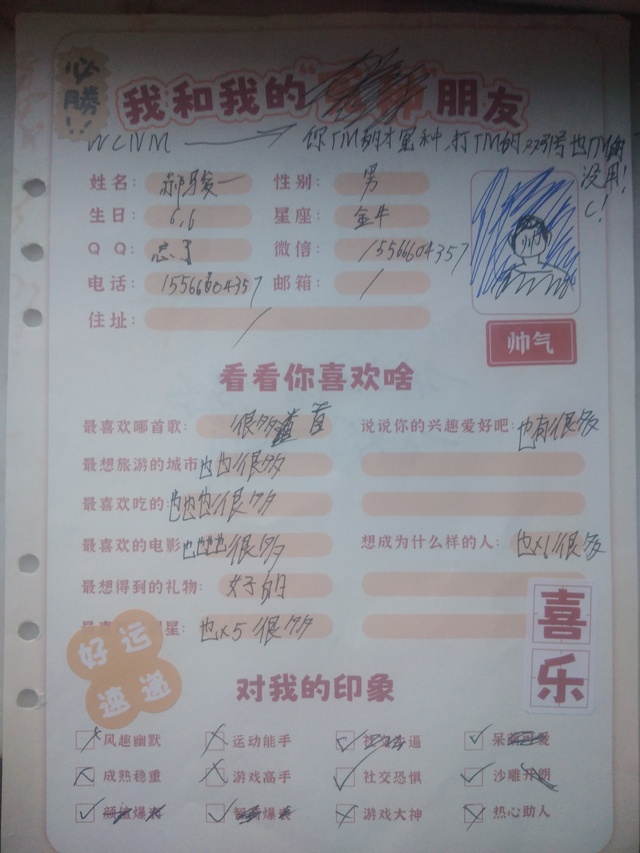 必
勝
!!
我和我的“ ”朋友
WCNM 你TM的才蜜种,打TM的双引号也TM没用!
姓名: 郝骏一 性别: 男
生日: 6.6 星座: 金牛
QQ: 忘了 微信: 15566604357
电话: 15566604357 邮箱: /
住址: /
帅气
看看你喜欢啥
最喜欢哪首歌: 很多首 说说你的兴趣爱好吧: 也有很多
最想旅游的城市 也也很多
最喜欢吃的: 也也也很多
最喜欢的电影 也也也也很多 想成为什么样的人: 也x6很多
最想得到的礼物: 好的
星: 也x5很多
好运
速递
喜
乐
对我的印象
风趣幽默 运动能手 逼 呆
成熟稳重 游戏高手 社交恐惧 沙雕开朗
爆 爆 游戏大神 热心助人